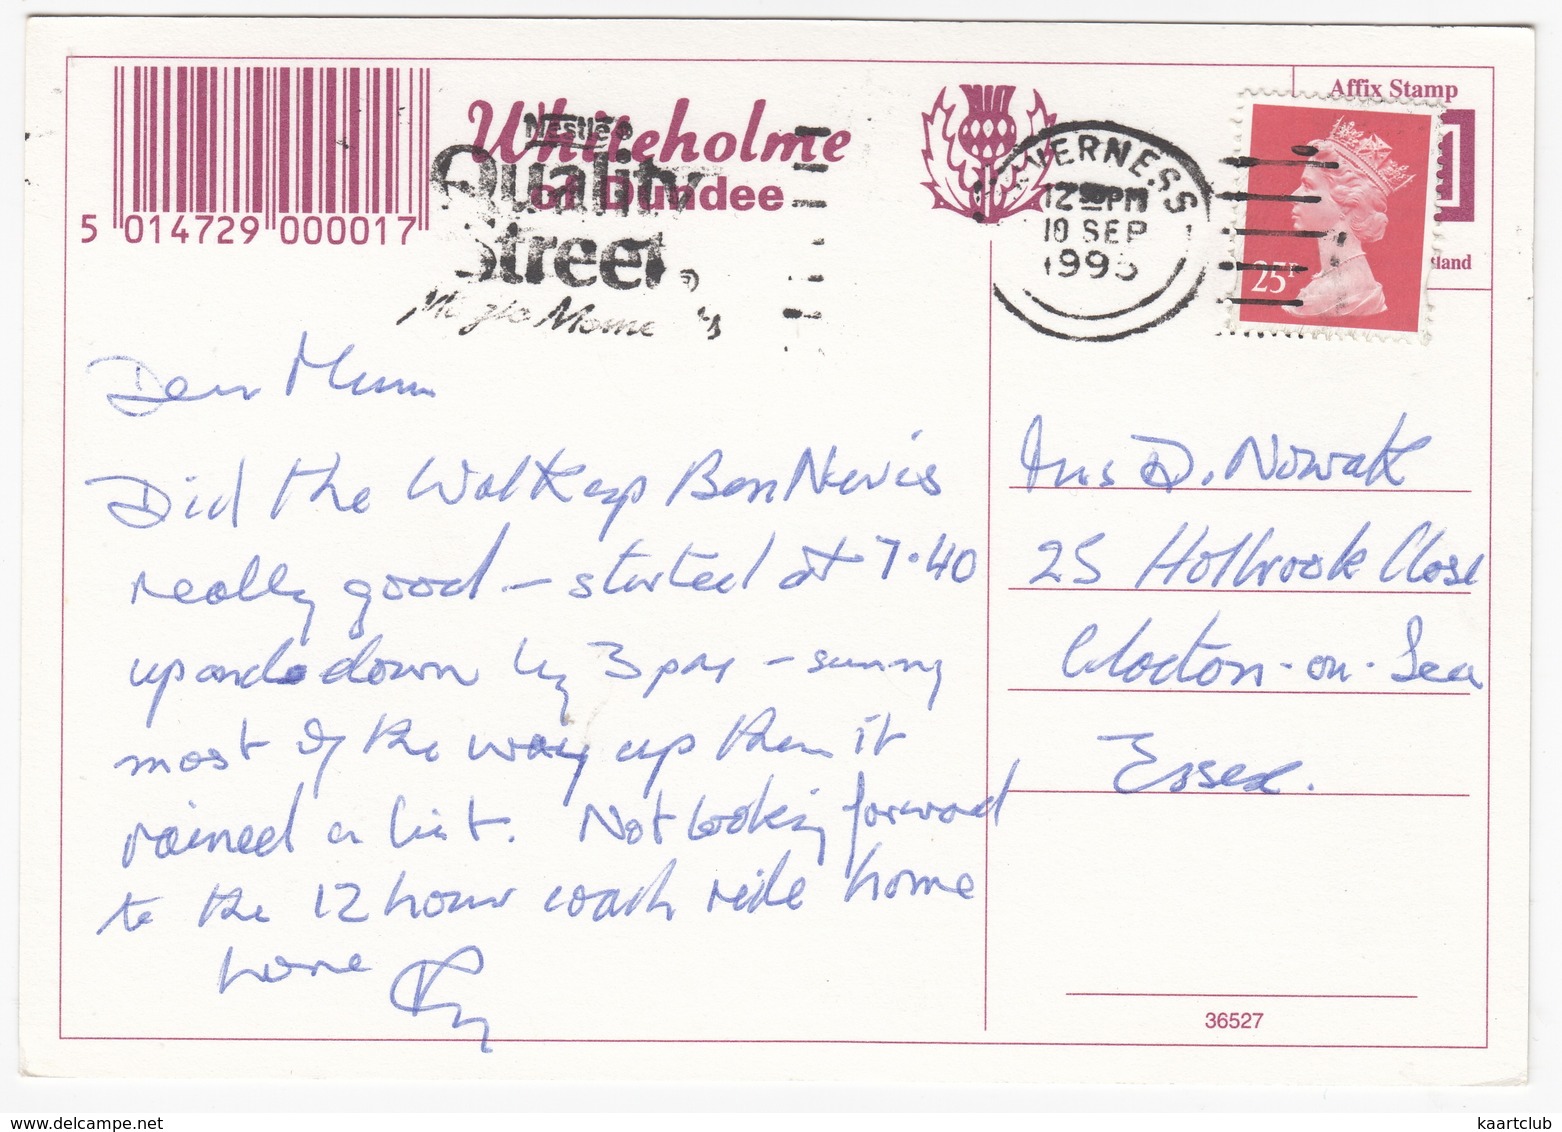 Affix Stamp
Whiteholme
of Dundee
Nestlé
Quality
Street
Magic Moments
INVERNESS
12 PM
10 SEP
1995
25P
5 014729 000017
Dear Mum
Did the Walk up Ben Nevis
really good – started at 7.40
up and down by 3pm – sunny
most of the way up then it
rained a bit. Not looking forward
to the 12 hour coach ride home
Love
Mrs D. Nowak
25 Holbrook Close
Clacton-on-Sea
Essex.
36527
kaartclub